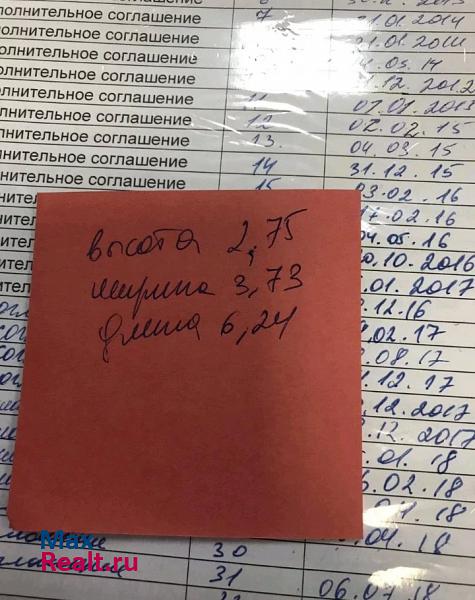 полнительное соглашение 7 21.01.2014
олнительное соглашение
полнительное соглашение
олнительное соглашение 12.2012
полнительное соглашение 11
олнительное соглашение 12 02.02.15
олнительное соглашение 13 04.03.15
олнительное соглашение 14 31.12.15
15 03.02.16
17.02.16
04.05.16
10.2016
01.2017
12.16
02.17
08.17
12.17
12.2017
12.2017
01.18
02.18
18
04.18
высота 2,75
ширина 3,73
длина 6,24
Max
Realt.ru
30
31 06.07.18